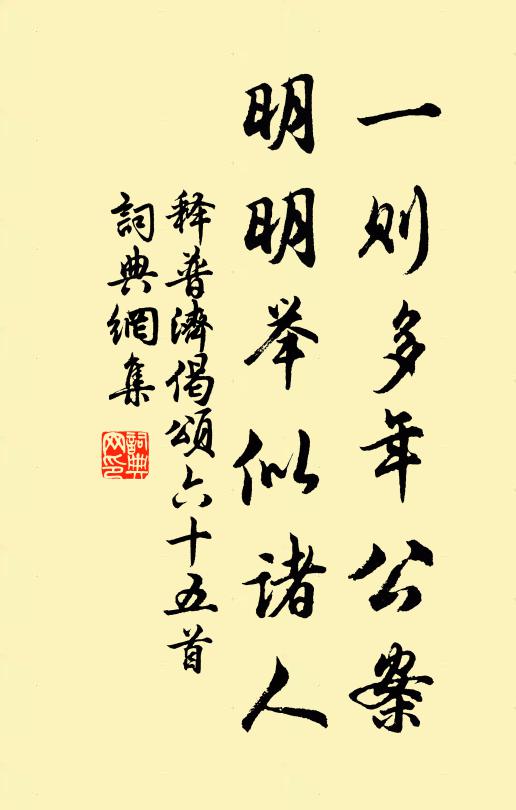 一则多年公案
明明举似诸人
释普濟偈頌六十五首
詞典網集
詞典网印